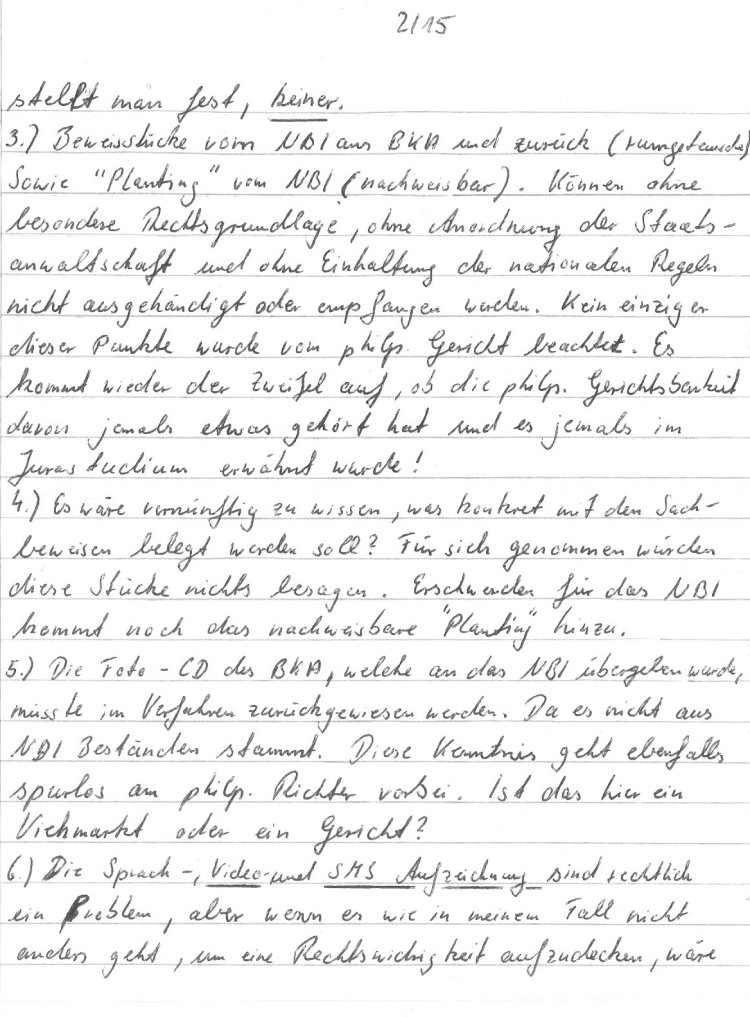 2/15
stellt man fest, keiner.
3.) Beweisstücke vom NBI ans BKA und zurück (rumgetauscht)
Sowie "Planting" vom NBI (nachweisbar). Können ohne
besondere Rechtsgrundlage, ohne Anordnung der Staats-
anwaltschaft und ohne Einhaltung der nationalen Regeln
nicht ausgehändigt oder empfangen werden. Kein einziger
dieser Punkte wurde vom philp. Gericht beachtet. Es
kommt wieder der Zweifel auf, ob die philp. Gerichtsbarkeit
davon jemals etwas gehört hat und es jemals im
Jurastudium erwähnt wurde!
4.) Es wäre vernünftig zu wissen, was konkret mit den Sach-
beweisen belegt werden soll? Für sich genommen würden
diese Stücke nichts besagen. Erschwerden für das NBI
kommt noch das nachweisbare "Planting" hinzu.
5.) Die Foto-CD des BKA, welche an das NBI übergeben wurde,
müsste im Verfahren zurückgewiesen werden. Da es nicht aus
NBI Beständen stammt. Diese Kenntnis geht ebenfalls
spurlos am philp. Richter vorbei. Ist das hier ein
Viehmarkt oder ein Gericht?
6.) Die Sprach-, Video- und SMS Aufzeichnung sind rechtlich
ein Problem, aber wenn es wie in meinem Fall nicht
anders geht, um eine Rechtswidrigkeit aufzudecken, wäre